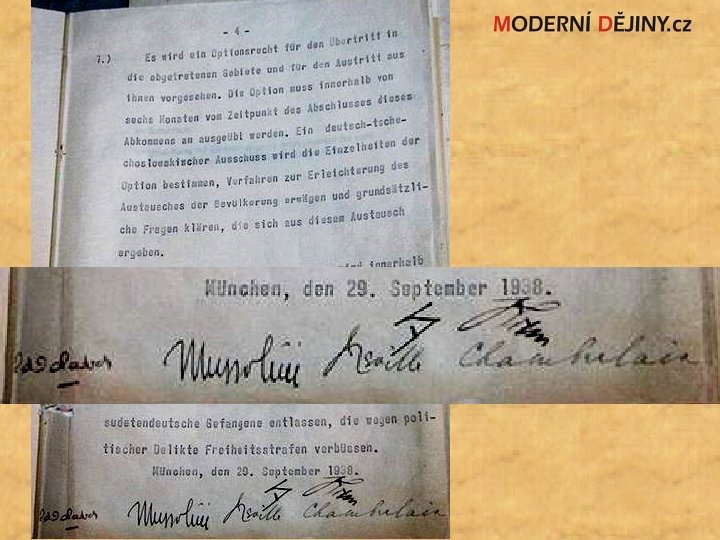 MODERNÍ DĚJINY.cz
- 4 -
7.) Es wird ein Optionsrecht für den Übertritt in
die abgetretenen Gebiete und für den Austritt aus
ihnen vorgesehen. Die Option muss innerhalb von
sechs Monaten vom Zeitpunkt des Abschlusses dieses
Abkommens an ausgeübt werden. Ein deutsch-tsche-
choslowakischer Ausschuss wird die Einzelheiten der
Option bestimmen, Verfahren zur Erleichterung des
Austausches der Bevölkerung erwägen und grundsätzli-
che Fragen klären, die sich aus diesem Austausch
ergeben.
wird innerhalb
München, den 29. September 1938.
Mussolini Neville Chamberlain
sudetendeutsche Gefangene entlassen, die wegen poli-
tischer Delikte Freiheitsstrafen verbüssen.
München, den 29. September 1938.
Mussolini Neville Chamberlain